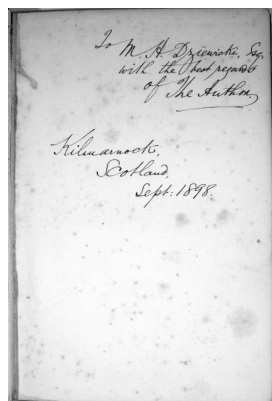 To M. H. Dziewicki, Esq,
with the best regards
of The Author
Kilmarnock,
Scotland,
Sept: 1898.